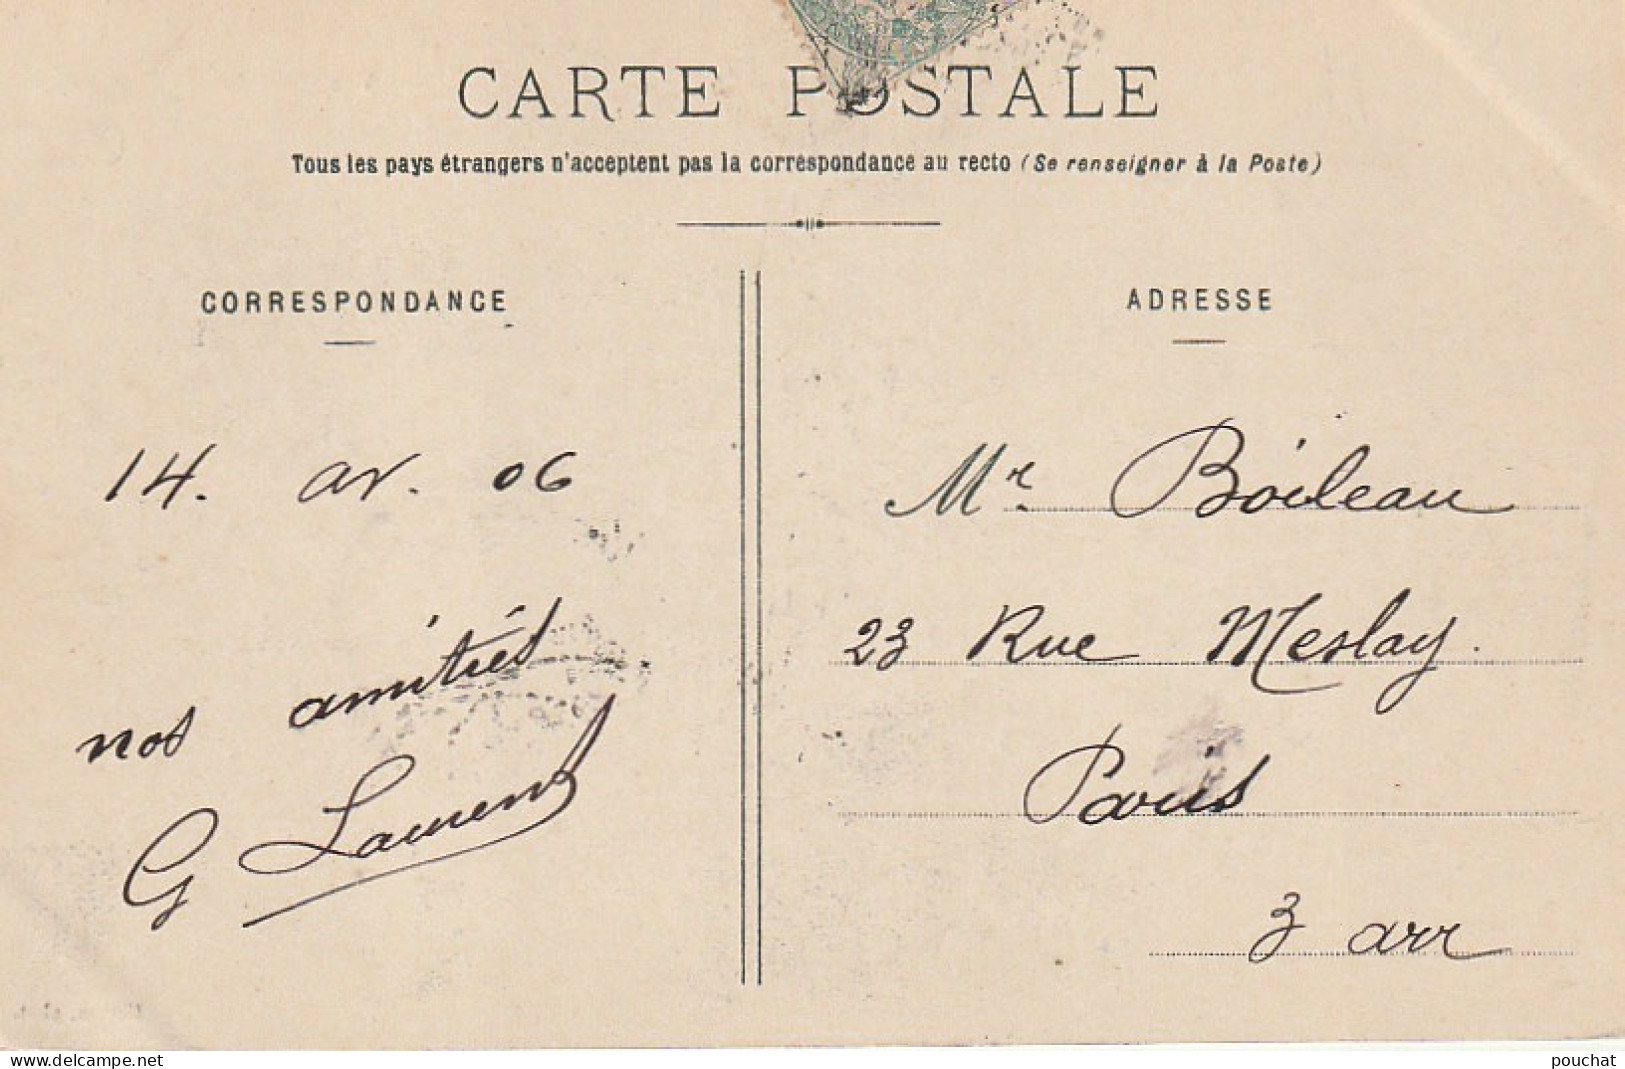 CARTE POSTALE
Tous les pays étrangers n'acceptent pas la correspondance au recto (Se renseigner à la Poste)
CORRESPONDANCE
14. av. 06
nos amitiés
G Laurent
ADRESSE
Mr. Boileau
23 Rue Meslay.
Paris
3 arr
www.delcampe.net
pouchat